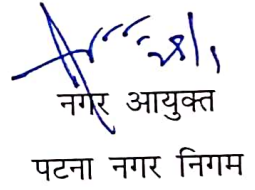 28/1
नगर आयुक्त
पटना नगर निगम